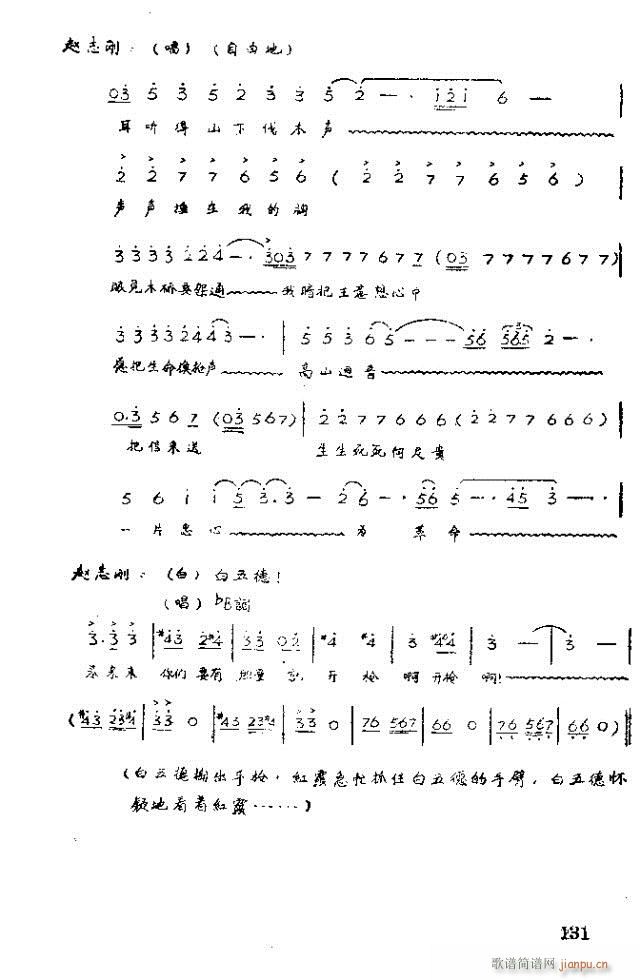 赵志刚：（唱）（自由地）
03 5 3 5 2 3 3 5 2 — · 121 6 —
耳听得山下伐木声
2 2 7 7 6 5 6 ( 2 2 7 7 6 5 6 )
声声撞在我的胸
3 3 3 3 2 2 4 — · 303 7 7 7 7 6 7 7 (03 7 7 7 7 6 7 7)
眼见木桥要架通
3 3 3 3 2 4 4 3 — · 5 5 3 6 5 — — — 56 565 2 — ·
愿把生命换枪声 高山迴音
0·3 5 6 7 (03 567) 2 2 7 7 6 6 6 (2 2 7 7 6 6 6)
把信来送 生生死死何足贵
5 6 i i 5 3·3 — 2 6 — · 56 5 — · 45 3 —
一片忠心 为 革命
赵志刚：（白）白五德！
（唱）bE调
3·3 3 #43 2#4 33 02 #4 #4 3 #43 3 — 3 —
来来来 你们要有 开 枪 啊开枪 啊！
(#43 23#4 33 0 #43 23#4 33 0 76 567 66 0 76 567 66 0)
（白五德掏出手枪，紅霞急忙抓住白五德的手臂，白五德怀
疑地看着紅霞……）
131
歌谱简谱网 jianpu.cn